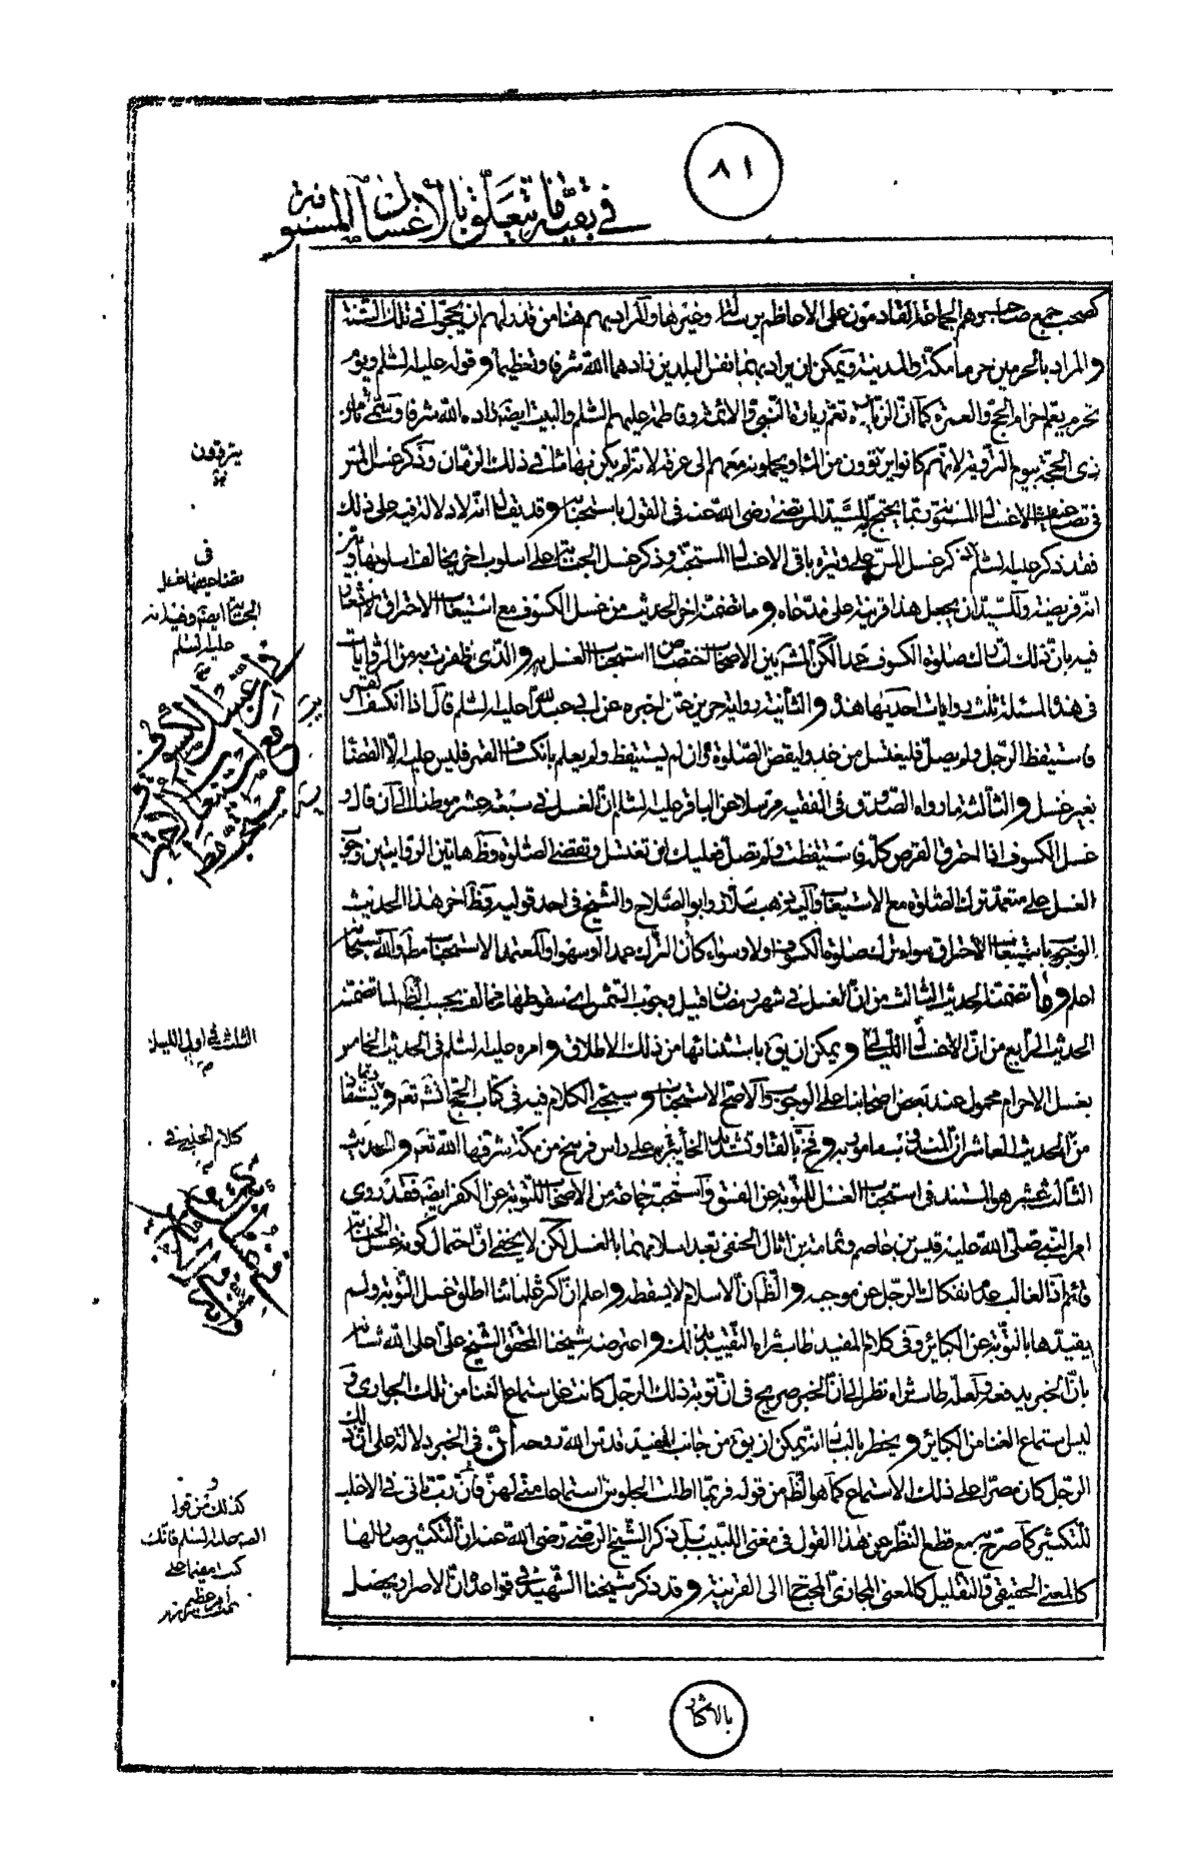 ٨١
في بقية ما يتعلق بالأغسال المسنونة
كصحب جمع صاحب وهم الجماعة القادمون على الاعاظم برسالة وغيرها والمراد بهم هنا من قدر لهم ان يحجوا في تلك السنة
والمراد بالحرمين حرما مكة والمدينة ويمكن ان يراد بهما نفس البلدين زادهما الله شرفا وتعظيما وقوله عليه السلم ويوم
تحرم يعم احرام الحج والعمرة كما ان الزيارة تعم زيارة النبي والائمة وفاطمة عليهم السلم والبيت ايضا زاده الله شرفا وتسمية ثامن
ذي الحجة بيوم التروية لانهم كانوا يرتوون من الماء ويحملونه معهم الى عرفة لانه لم يكن بها ماء في ذلك الزمان وذكر غسل المس
في تضاعيف الاغسال المسنونة مما يحتج به للسيد المرتضى رضي الله عنه في القول باستحبابه وقد يقال انه لا دلالة فيه على ذلك
فقد ذكر عليه السلم غسل المس على وتيرة باقي الاغسال المستحبة وذكر غسل الجنابة على اسلوب اخر يخالف اسلوبها
انه فريضة وللسيد ان يجعل هذا قرينة على مدعاه وما تضمنه اخر الحديث من غسل الكسوف مع استيعاب الاحتراق لا اشعار
فيه بان ذلك لتارك صلوة الكسوف عمدا لكن المش بين الاصحاب اختصاص استحباب الغسل به والذي ظفرت به من الروايات
في هذه المسئلة ثلث روايات احديها هذه والثانية رواية حريز عمن اخبره عن ابي عبد الله عليه السلم قال اذا انكسف القمر
فاستيقظ الرجل ولم يصل فليغتسل من غد وليقض الصلوة وان لم يستيقظ ولم يعلم بانكساف القمر فليس عليه الا القضاء
بغير غسل والثالثة ما رواه الصدوق في الفقيه مرسلا عن الباقر عليه السلم ان الغسل في سبعة عشر موطنا الى ان قال و
غسل الكسوف اذا احترق القرص كله فاستيقظت ولم تصل فعليك ان تغتسل وتقضي الصلوة وظ هاتين الروايتين وجوب
الغسل على متعمد ترك الصلوة مع الاستيعاب واليه ذهب سلار وابو الصلاح والشيخ في احد قوليه وظ آخر هذا الحديث
الوجوب باستيعاب الاحتراق سواء ترك صلوة الكسوف اولا وسواء كان الترك عمدا او سهوا والمعتمد الاستحباب مط والله سبحانه
اعلم وما تضمنه الحديث الثالث من ان الغسل في شهر رمضان قبيل وجوب الشمس اي سقوطها مخالف بحسب الظ لما تضمنه
الحديث الرابع من ان الاغسال الليالي ويمكن ان يق باستثنائها من ذلك الاطلاق وامره عليه السلم في الحديث الخامس
بغسل الاحرام محمول عند بعض اصحابنا على الوجوب والاصح الاستحباب وسيجئ الكلام فيه في كتاب الحج انش تعه
من الحديث العاشر ان
الثالث عشر هو المستند في استحباب الغسل للتوبة عن الفسق واستحبه جماعة من الاصحاب للتوبة عن الكفر ايضا فقد روي
امر النبي صلى الله عليه وآله قيس بن عاصم وثمامة بن اثال الحنفي بعد اسلامهما بالغسل لكن لا يخفى ان احتمال كونه غسل الجنابة
قائم اذ الغالب عدم انفكاك الرجل عن موجبه والظ ان الاسلام لا يسقطه واعلم ان اكثر علمائنا اطلق غسل التوبة ولم
يقيدها بالتوبة عن الكبائر وفي كلام المفيد طاب ثراه التقييد بذلك واعترضه شيخنا المحقق الشيخ علي اعلى الله شانه
بان الخبر يدفعه ولعله طاب ثراه نظر الى ان الخبر صريح في ان توبة ذلك الرجل كانت عن استماع الغنا من تلك الجواري و
ليس استماع الغنا من الكبائر ويخطر بالبال انه يمكن ان يق من جانب المفيد قدس الله روحه ان في الخبر دلالة على ان ذلك
الرجل كان مصرا على ذلك الاستماع كما هو الظ من قوله فربما اطلت الجلوس استماعا مني لهن فان رب تاتي في الاغلب
للتكثير كما صرح به مع قطع النظر عن هذا القول في مغني اللبيب بل ذكر الشيخ الرضي رضي الله عنه ان التكثير صار لها
كالمعنى الحقيقي والتقليل كالمعنى المجازي المحتاج الى القرينة وقد ذكر شيخنا الشهيد في قواعده ان الاصرار يحصل
يرتوون
في
الثلث في اول الليل
كلام الحلبي في
و
كذلك من قول
الصه عليه السلم فانك
كنت مقيما على
امر عظيم
بالاكثار